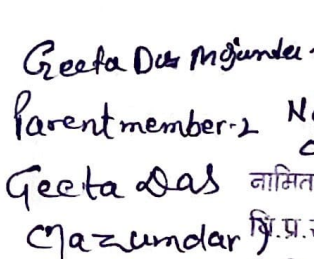 Geeta Das Mojumder
Parent member-2 N
Geeta Das नामित
Mazumdar शि.प्र.